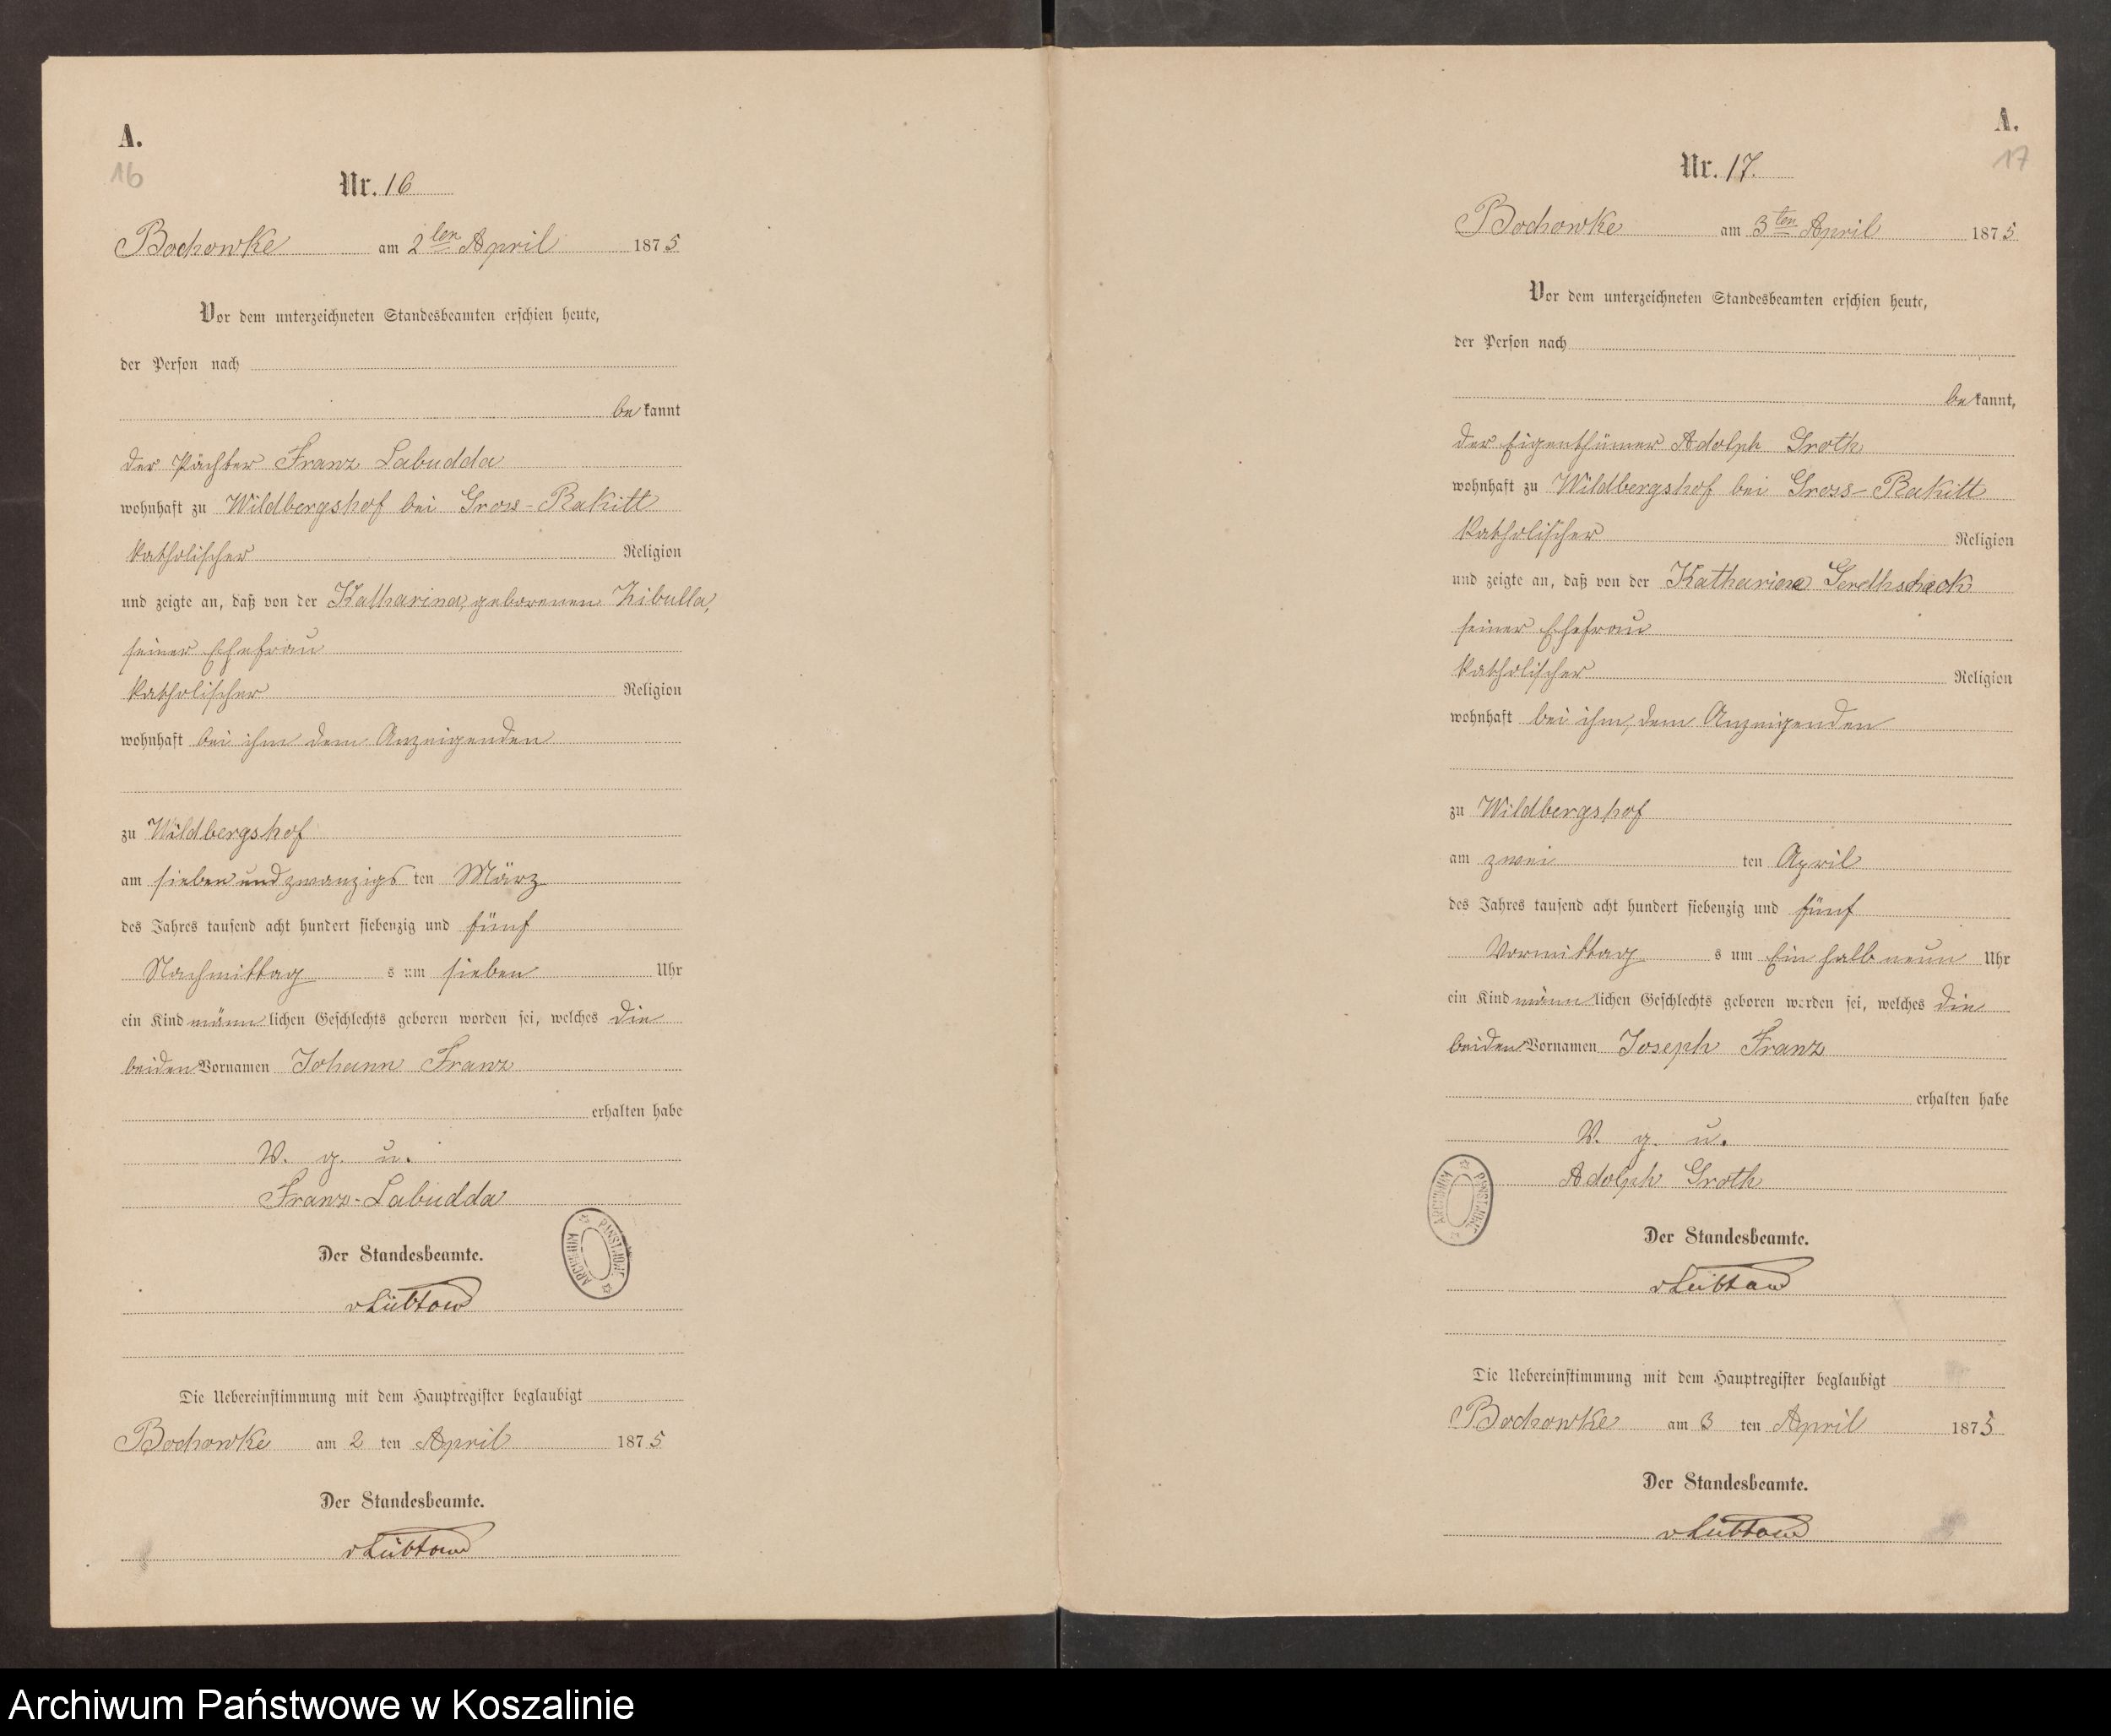 A.
16
Nr. 16
Bochowke am 2ten April 1875
Vor dem unterzeichneten Standesbeamten erschien heute,
der Person nach
be kannt
der Pächter Franz Labudda
wohnhaft zu Wildbergshof bei Gross-Rakitt
katholischer Religion
und zeigte an, daß von der Katharina, geborenen Zibulla,
seiner Ehefrau
katholischer Religion
wohnhaft bei ihm dem Anzeigenden
zu Wildbergshof
am sieben und zwanzigs ten März
des Jahres tausend acht hundert siebenzig und fünf
Nachmittag s um sieben Uhr
ein Kind männ lichen Geschlechts geboren worden sei, welches die
beiden Vornamen Johann Franz
erhalten habe
V. g. u.
Franz Labudda
ARCHIWUM PAŃSTWOWE
Der Standesbeamte.
vLübtow
Die Uebereinstimmung mit dem Hauptregister beglaubigt
Bochowke am 2 ten April 1875
Der Standesbeamte.
vLübtow
A.
17
Nr. 17.
Bochowke am 3ten April 1875
Vor dem unterzeichneten Standesbeamten erschien heute,
der Person nach
be kannt,
der Eigenthümer Adolph Groth
wohnhaft zu Wildbergshof bei Gross-Rakitt
katholischer Religion
und zeigte an, daß von der Katharina
seiner Ehefrau
katholischer Religion
wohnhaft bei ihm, dem Anzeigenden
zu Wildbergshof
am zwei ten April
des Jahres tausend acht hundert siebenzig und fünf
Vormittag s um Ein halb neun Uhr
ein Kind männ lichen Geschlechts geboren worden sei, welches die
beiden Vornamen Joseph Franz
erhalten habe
V. g. u.
Adolph Groth
ARCHIWUM PAŃSTWOWE
Der Standesbeamte.
vLübtow
Die Uebereinstimmung mit dem Hauptregister beglaubigt
Bochowke am 3 ten April 1875
Der Standesbeamte.
vLübtow
Archiwum Państwowe w Koszalinie